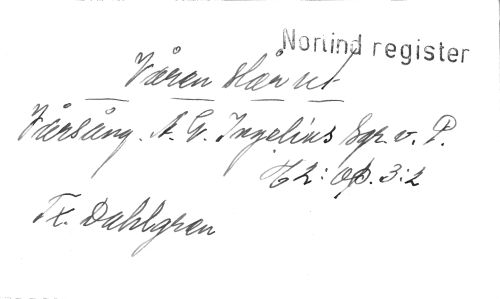 Nortind register
Våren slår ut
Vårsång. A. G. Ingelius Sgr. v. P.
H 2: op. 3:2
Tx. Dahlgren